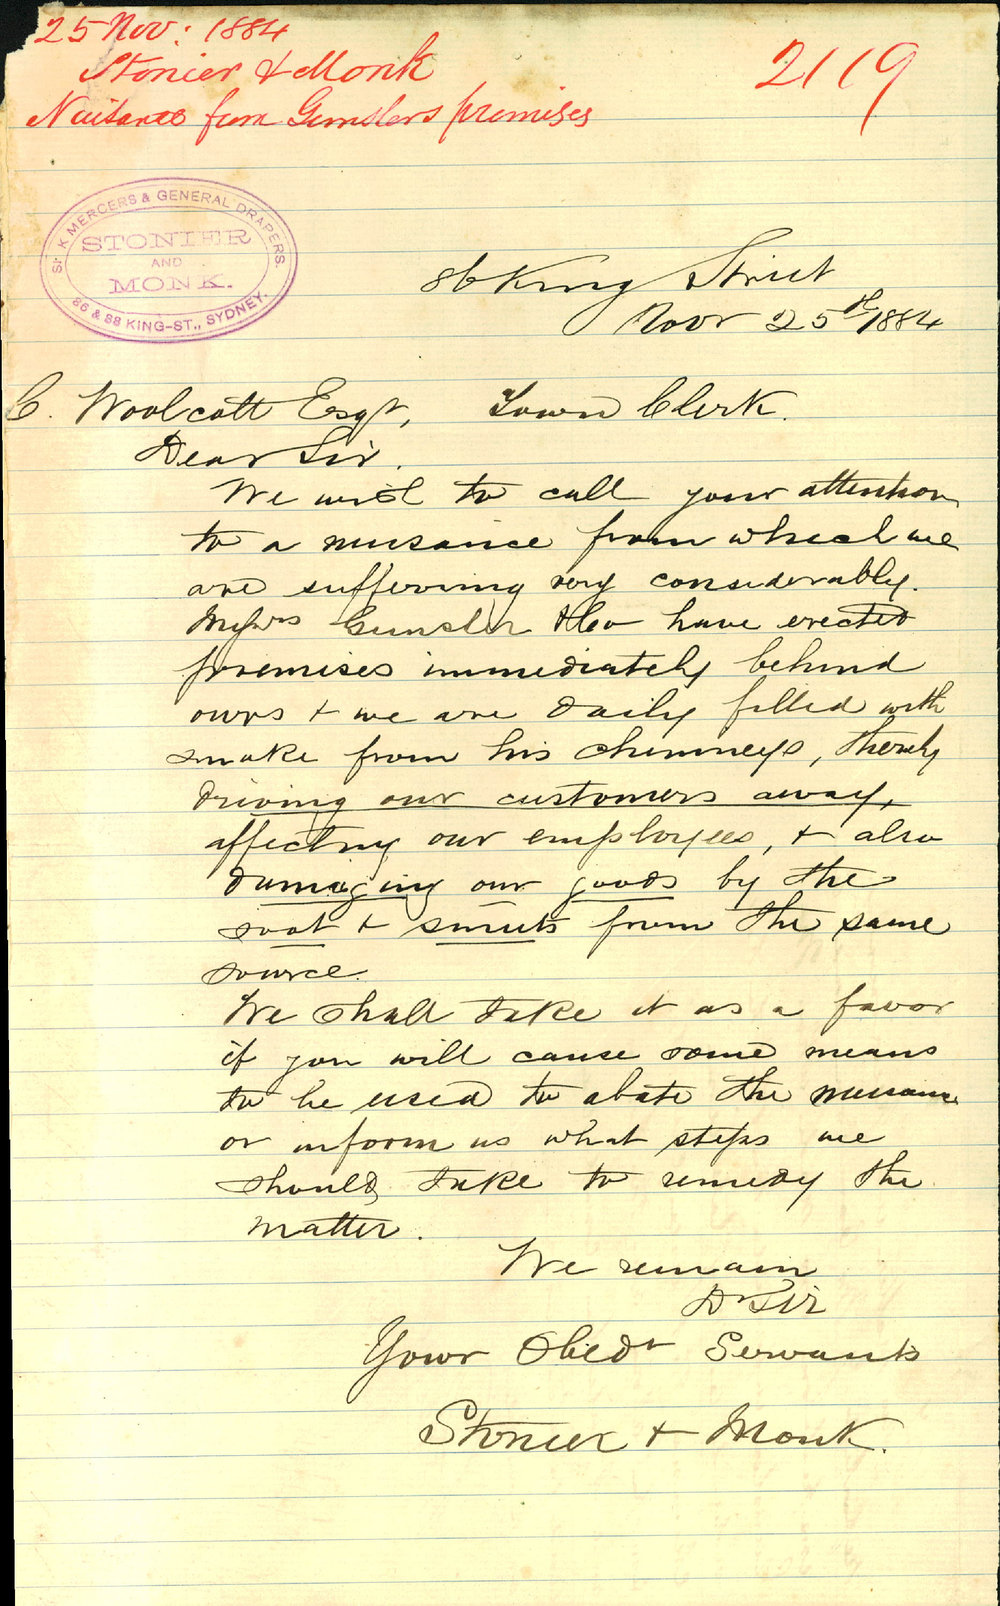 25 Nov: 1884
Stonier & Monk
Nuisance from Gunslers premises
2119
SILK MERCERS & GENERAL DRAPERS.
STONIER
AND
MONK.
86 & 88 KING-ST., SYDNEY.
86 King Street
Novr 25th/1884
C. Woolcott Esqr, Town Clerk.
Dear Sir.
We wish to call your attention
to a nuisance from which we
are suffering very considerably.
Messrs Gunsler & Co have erected
premises immediately behind
ours & we are daily filled with
smoke from his chimneys, thereby
driving our customers away,
affecting our employees, & also
damaging our goods by the
soot & smuts from the same
source.
We shall take it as a favor
if you will cause some means
to be used to abate the nuisance
or inform us what steps we
should take to remedy the
matter.
We remain
Dr Sir
Your Obedt Servants
Stonier & Monk.